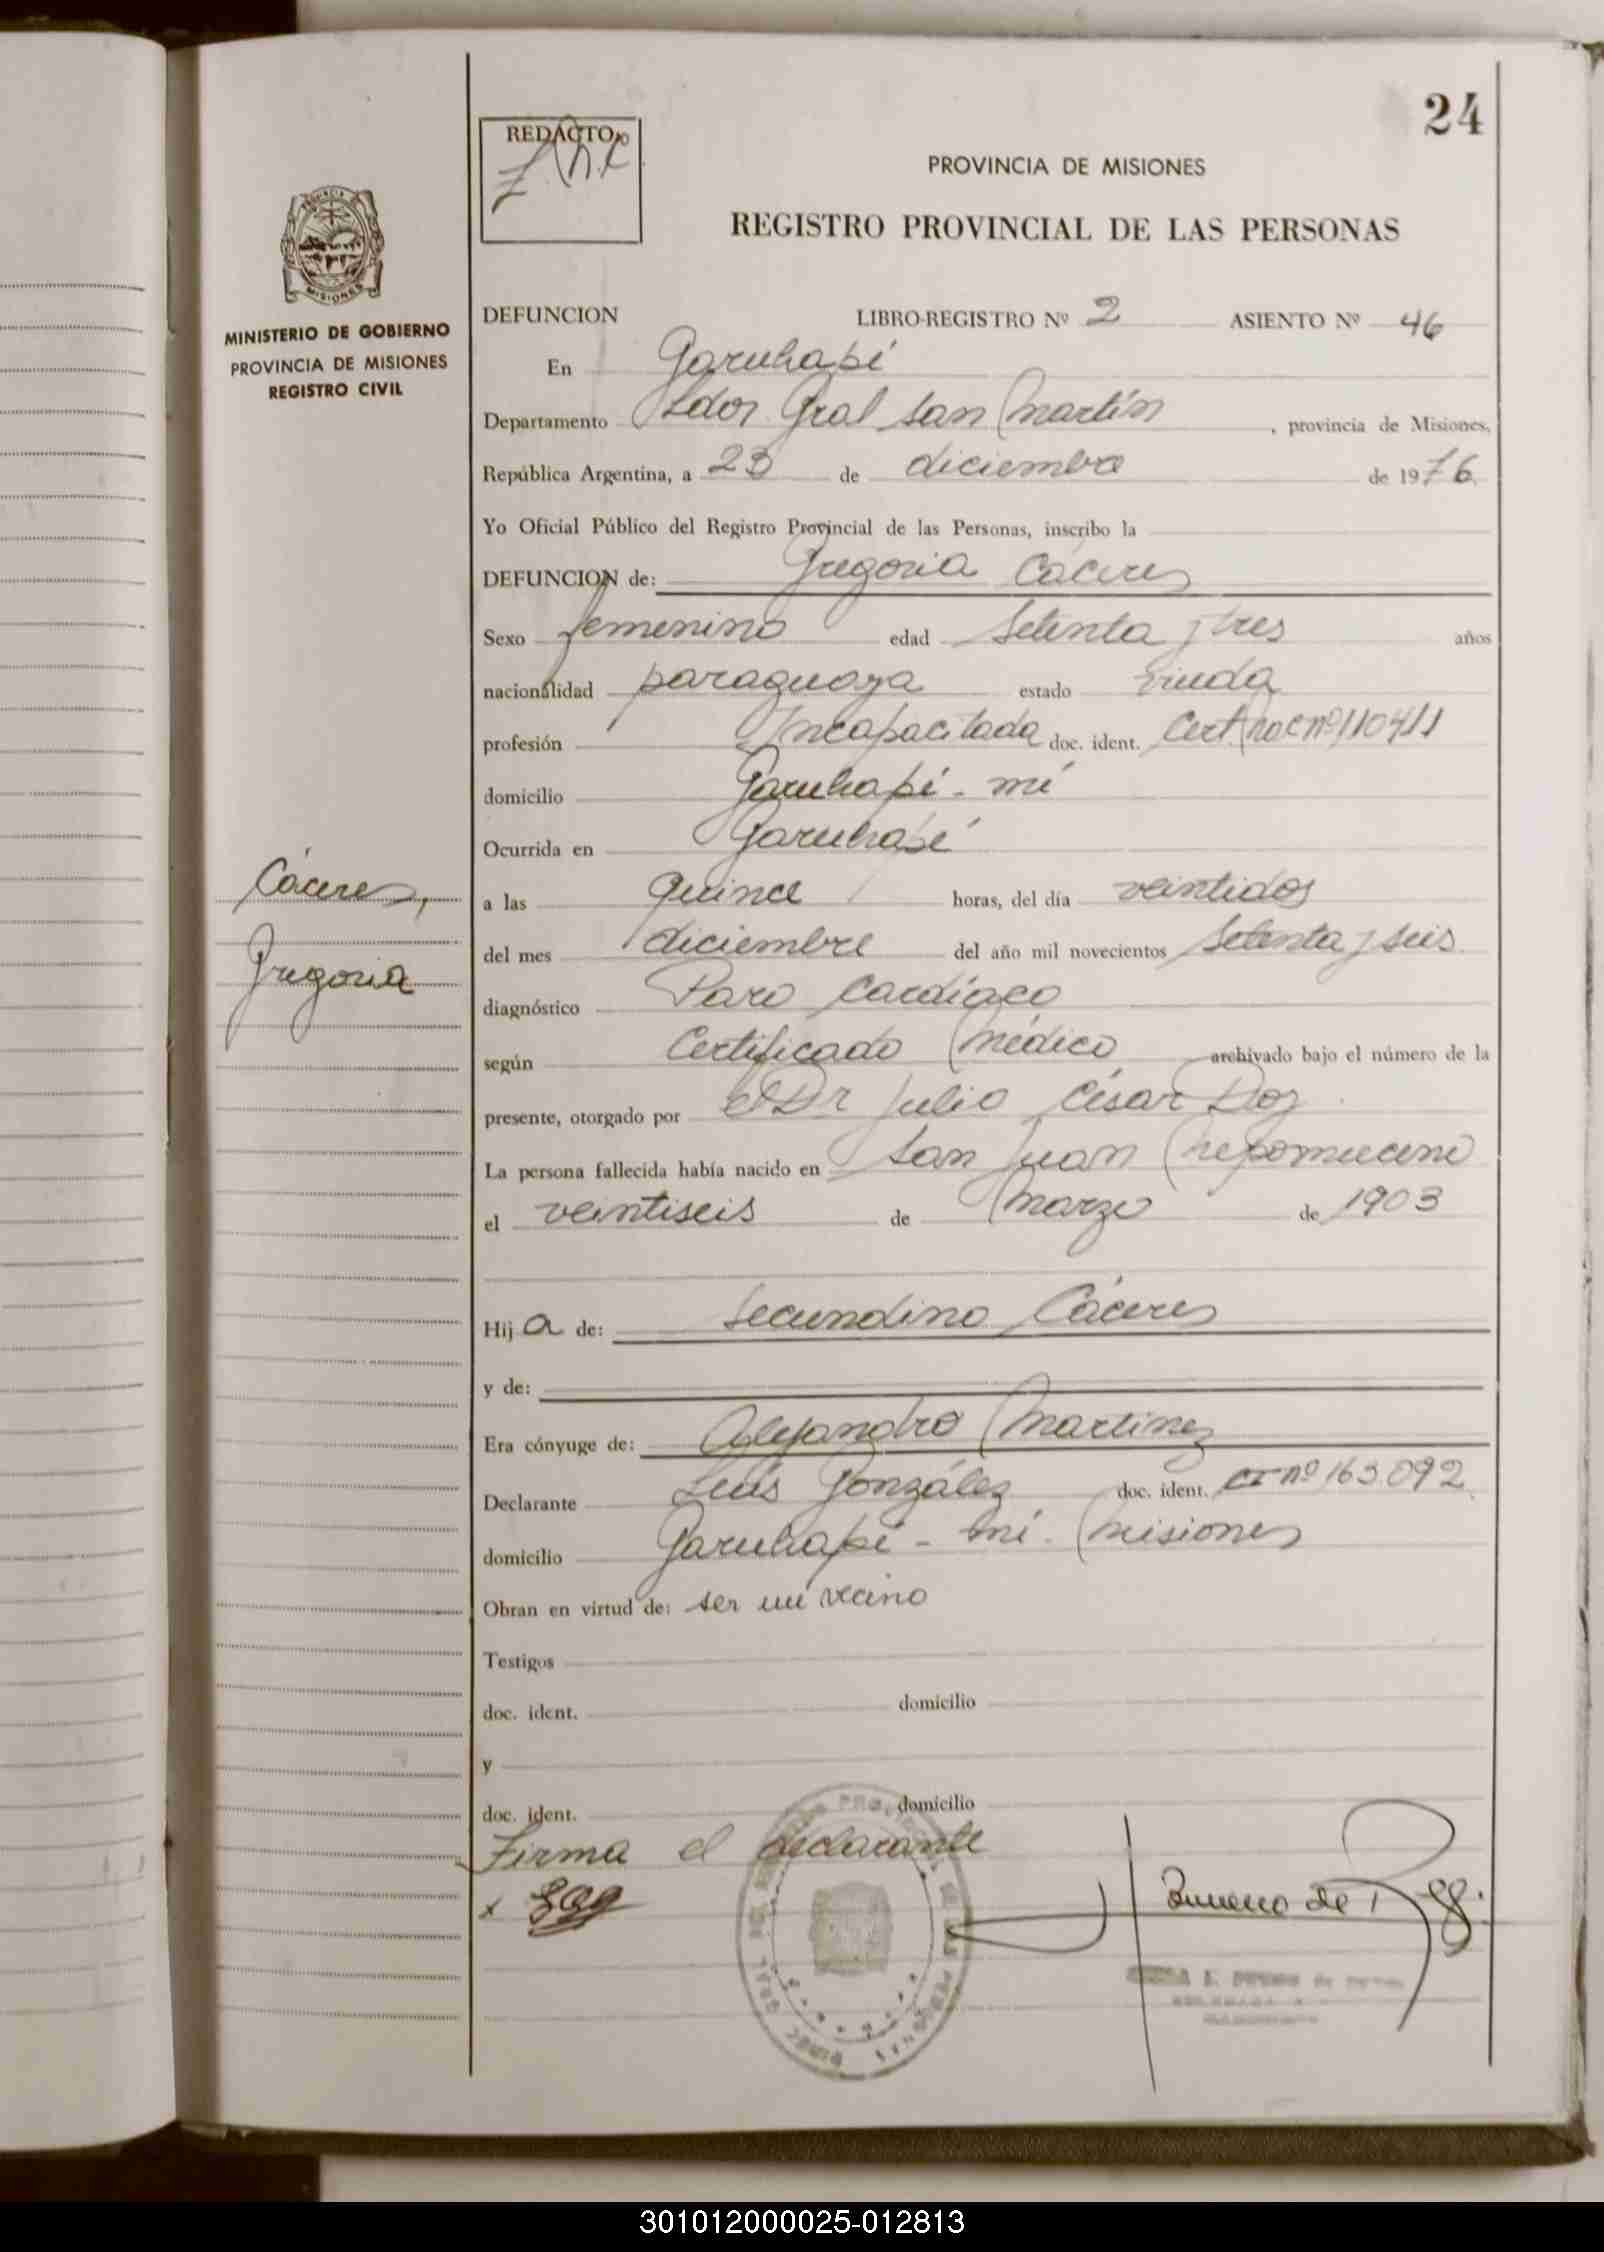 24
REDACTO
PROVINCIA DE MISIONES
REGISTRO PROVINCIAL DE LAS PERSONAS
MINISTERIO DE GOBIERNO
PROVINCIA DE MISIONES
REGISTRO CIVIL
DEFUNCION LIBRO-REGISTRO Nº 2 ASIENTO Nº 46
En Garuhapé
Departamento Ldor Gral San Martín , provincia de Misiones,
República Argentina, a 23 de diciembre de 1976
Yo Oficial Público del Registro Provincial de las Personas, inscribo la
DEFUNCION de: Gregoria Cáceres
Sexo femenino edad Setenta y tres años
nacionalidad paraguaya estado viuda
profesión Incapacitada doc. ident. Cert Nac nº 110411
domicilio Garuhapé - mí
Ocurrida en Garuhapé
Cáceres,
Gregoria
a las quince horas, del día veintidos
del mes diciembre del año mil novecientos Setenta y seis
diagnóstico Paro Cardíaco
según Certificado Médico archivado bajo el número de la
presente, otorgado por el Dr Julio César Doz
La persona fallecida había nacido en San Juan Nepomuceno
el veintiseis de Marzo de 1903
Hij a de: Secundino Cáceres
y de:
Era cónyuge de: Alejandro Martinez
Declarante Luís González doc. ident. CI nº 163.092
domicilio Garuhapé - mí - Misiones
Obran en virtud de: ser un vecino
Testigos
doc. ident. domicilio
y
doc. ident. domicilio
Firma el declarante
x
301012000025-012813